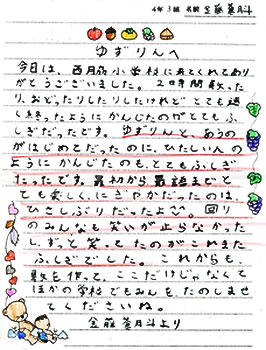 4年 3組 名前 金藤蒼斗
ゆずりんへ
今日は、西脇小学校に来てくれてあり
がとうございました。2時間歌った
り、おどったりしたりしたけれどとても速
く終ったようにかんじたのがとてもふ
しぎだったです。ゆずりんと、あうの
がはじめてだったのに、ひたしい人の
ようにかんじたのも、とてもふしぎ
だったです。最初から、最後までと
ても楽しく、にぎやかだったのは、
ひさしぶりだったよ。回り
のみんなも笑いが止らなかった
し、ずっと笑ってたのがこれまた
ふしぎでした。これからも、
歌を作って、ここだけじゃなくて
ほかの学校でもみんなをたのしませ
てくださいね。
金藤蒼斗より